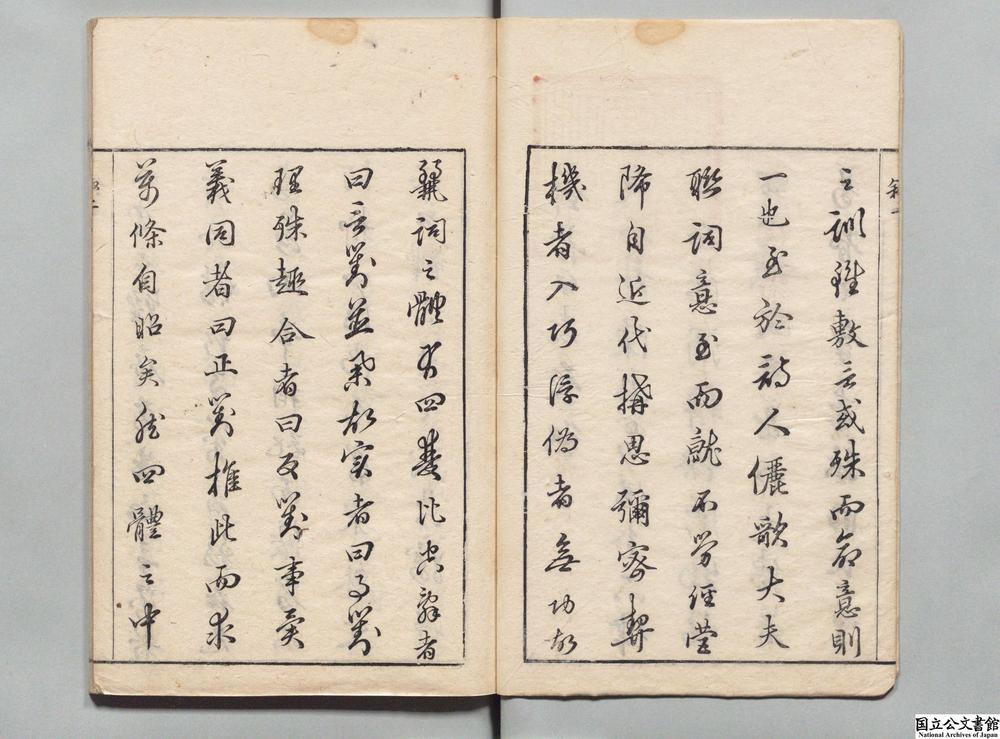 之訓雖敷言或殊而命意則
一也至於詩人儷歌大夫
聯詞意至而就不勞經營
降自近代搆思彌密契
機者入巧浮偽者無功故
麗詞之體有四雙比空辭者
曰言對並秉故实者曰事對
理殊趣合者曰反對事異
義同者曰正對推此而求
萬條自昭矣然四體之中
叙一
国立公文書館
National Archives of Japan